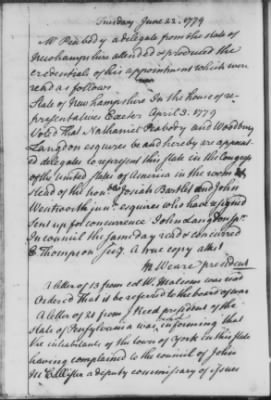 Tuesday June 22. 1779
Mr Peabody a delegate from the state of
Newhampshire attended & produced the
credentials of his appointment which were
read as follows
State of Newhampshire In the house of re-
presentatives Exeter April 3. 1779
Voted that Nathaniel Peabody and Woodbury
Langdon esquires be and hereby are appoint-
ed delegates to represent this state in the congress
of the united states of America in the room &
stead of the honble Josiah Bartlet and John
Wentworth junr. esquires who have resigned
Sent up for concurrence John Langdon Spr.
In council the same day read & concurred
E Thompson Secy. A true copy attest
M Weare president
A letter of 13 from col W. Malcom was read
Ordered that it be referred to the board of war
A letter of 21 from J Reed president of the
state of Pensylvania was read, informing that
the inhabitants of the town of York in this state
having complained to the council of John
McCallister a deputy commissary of issues